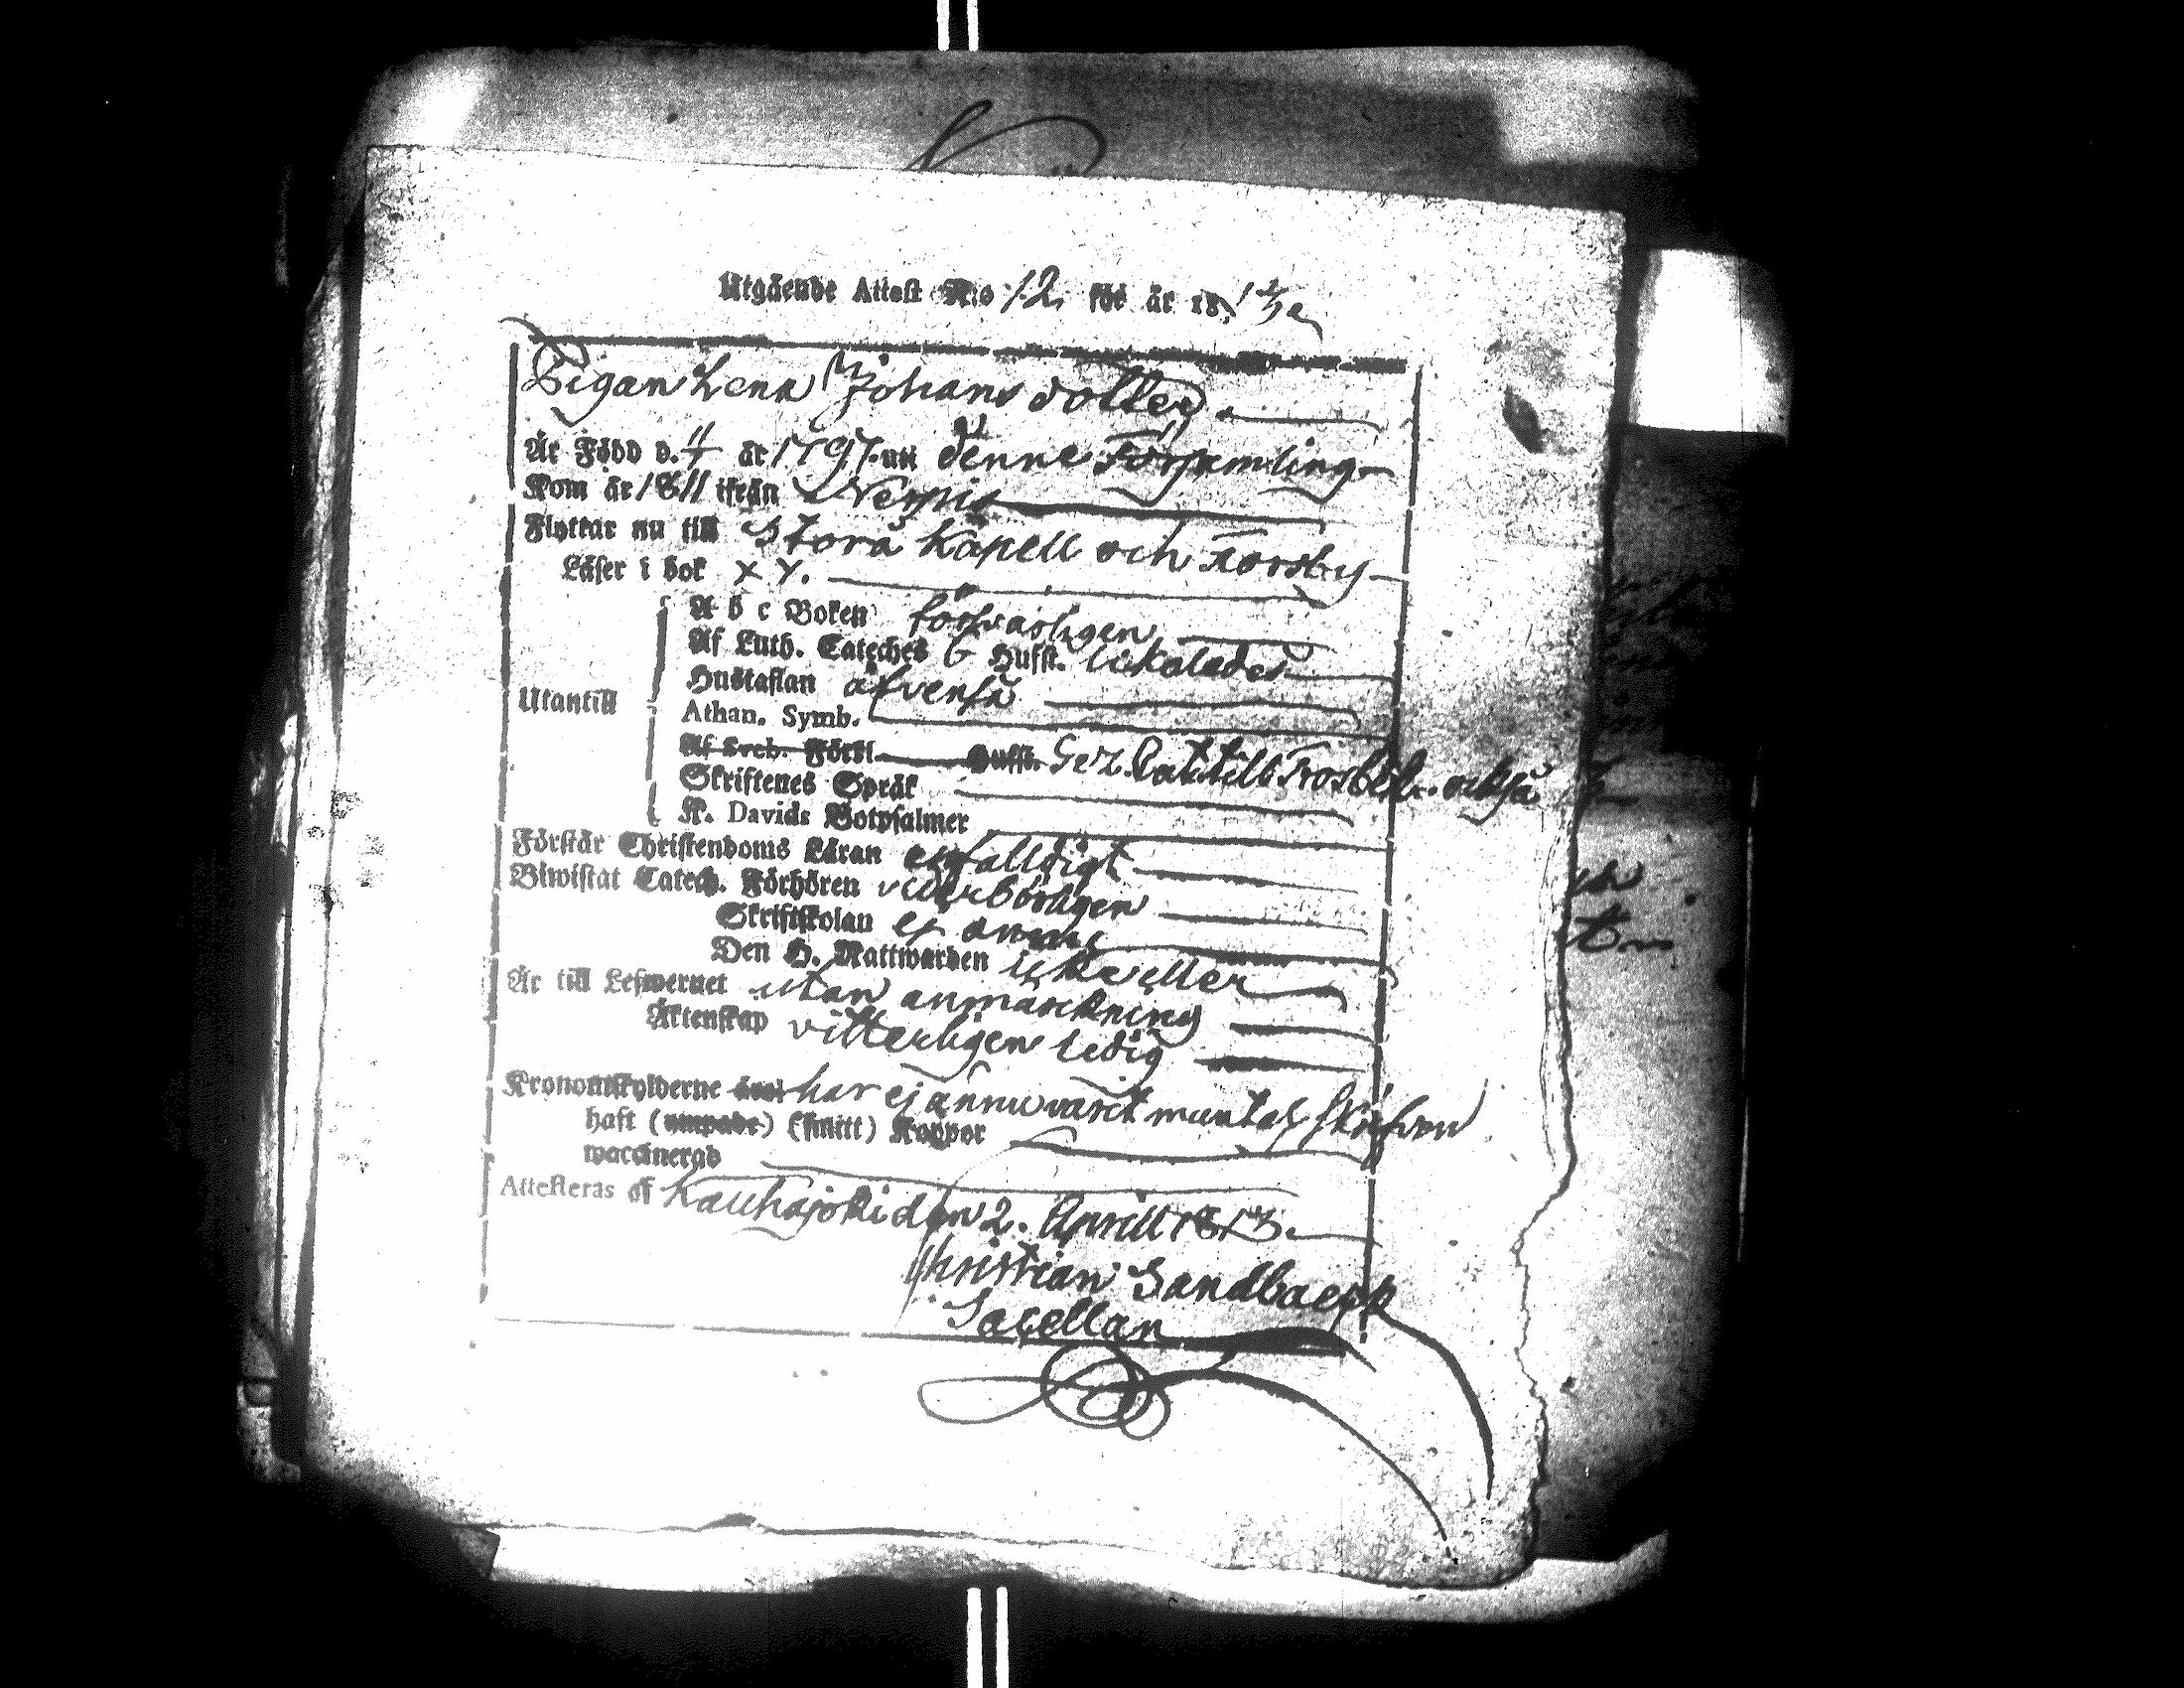 Utgående Attest N:o 12. för år 181
Pigan Lena Johans dotter.
Är Född d. 4/11 år 1797. uti denne Församling
Kom år 1811 ifrån
Flyttar nu till Storå Kapell och Korsby
Läser i bok x y.
A b c Boken försvarligen
Af Luth. Cateches 6 Hufst. likaledes
Hustaflan äfvenså
Utantill
Athan. Symb.
Af Sveb. Förkl. Hufst. också
Skriftenes Språk
K. Davids Botpsalmer
Förstår Christendoms Läran enfalldigt
Biwistat Catech. Förhören vederbörligen
Skriftskolan ej ännu
Den H. Nattwarden icke eller
Är till Lefwernet utan anmärkning
Äktenskap vitterligen ledig
Kronoutskylderne har ej ännu varit mantals skrifven
haft (ympade) (smitt) Koppor
waccinerad
Attesteras af Kauhajoki den 2. Aprill 1813.
Christian Sandbaeck
Sacellan